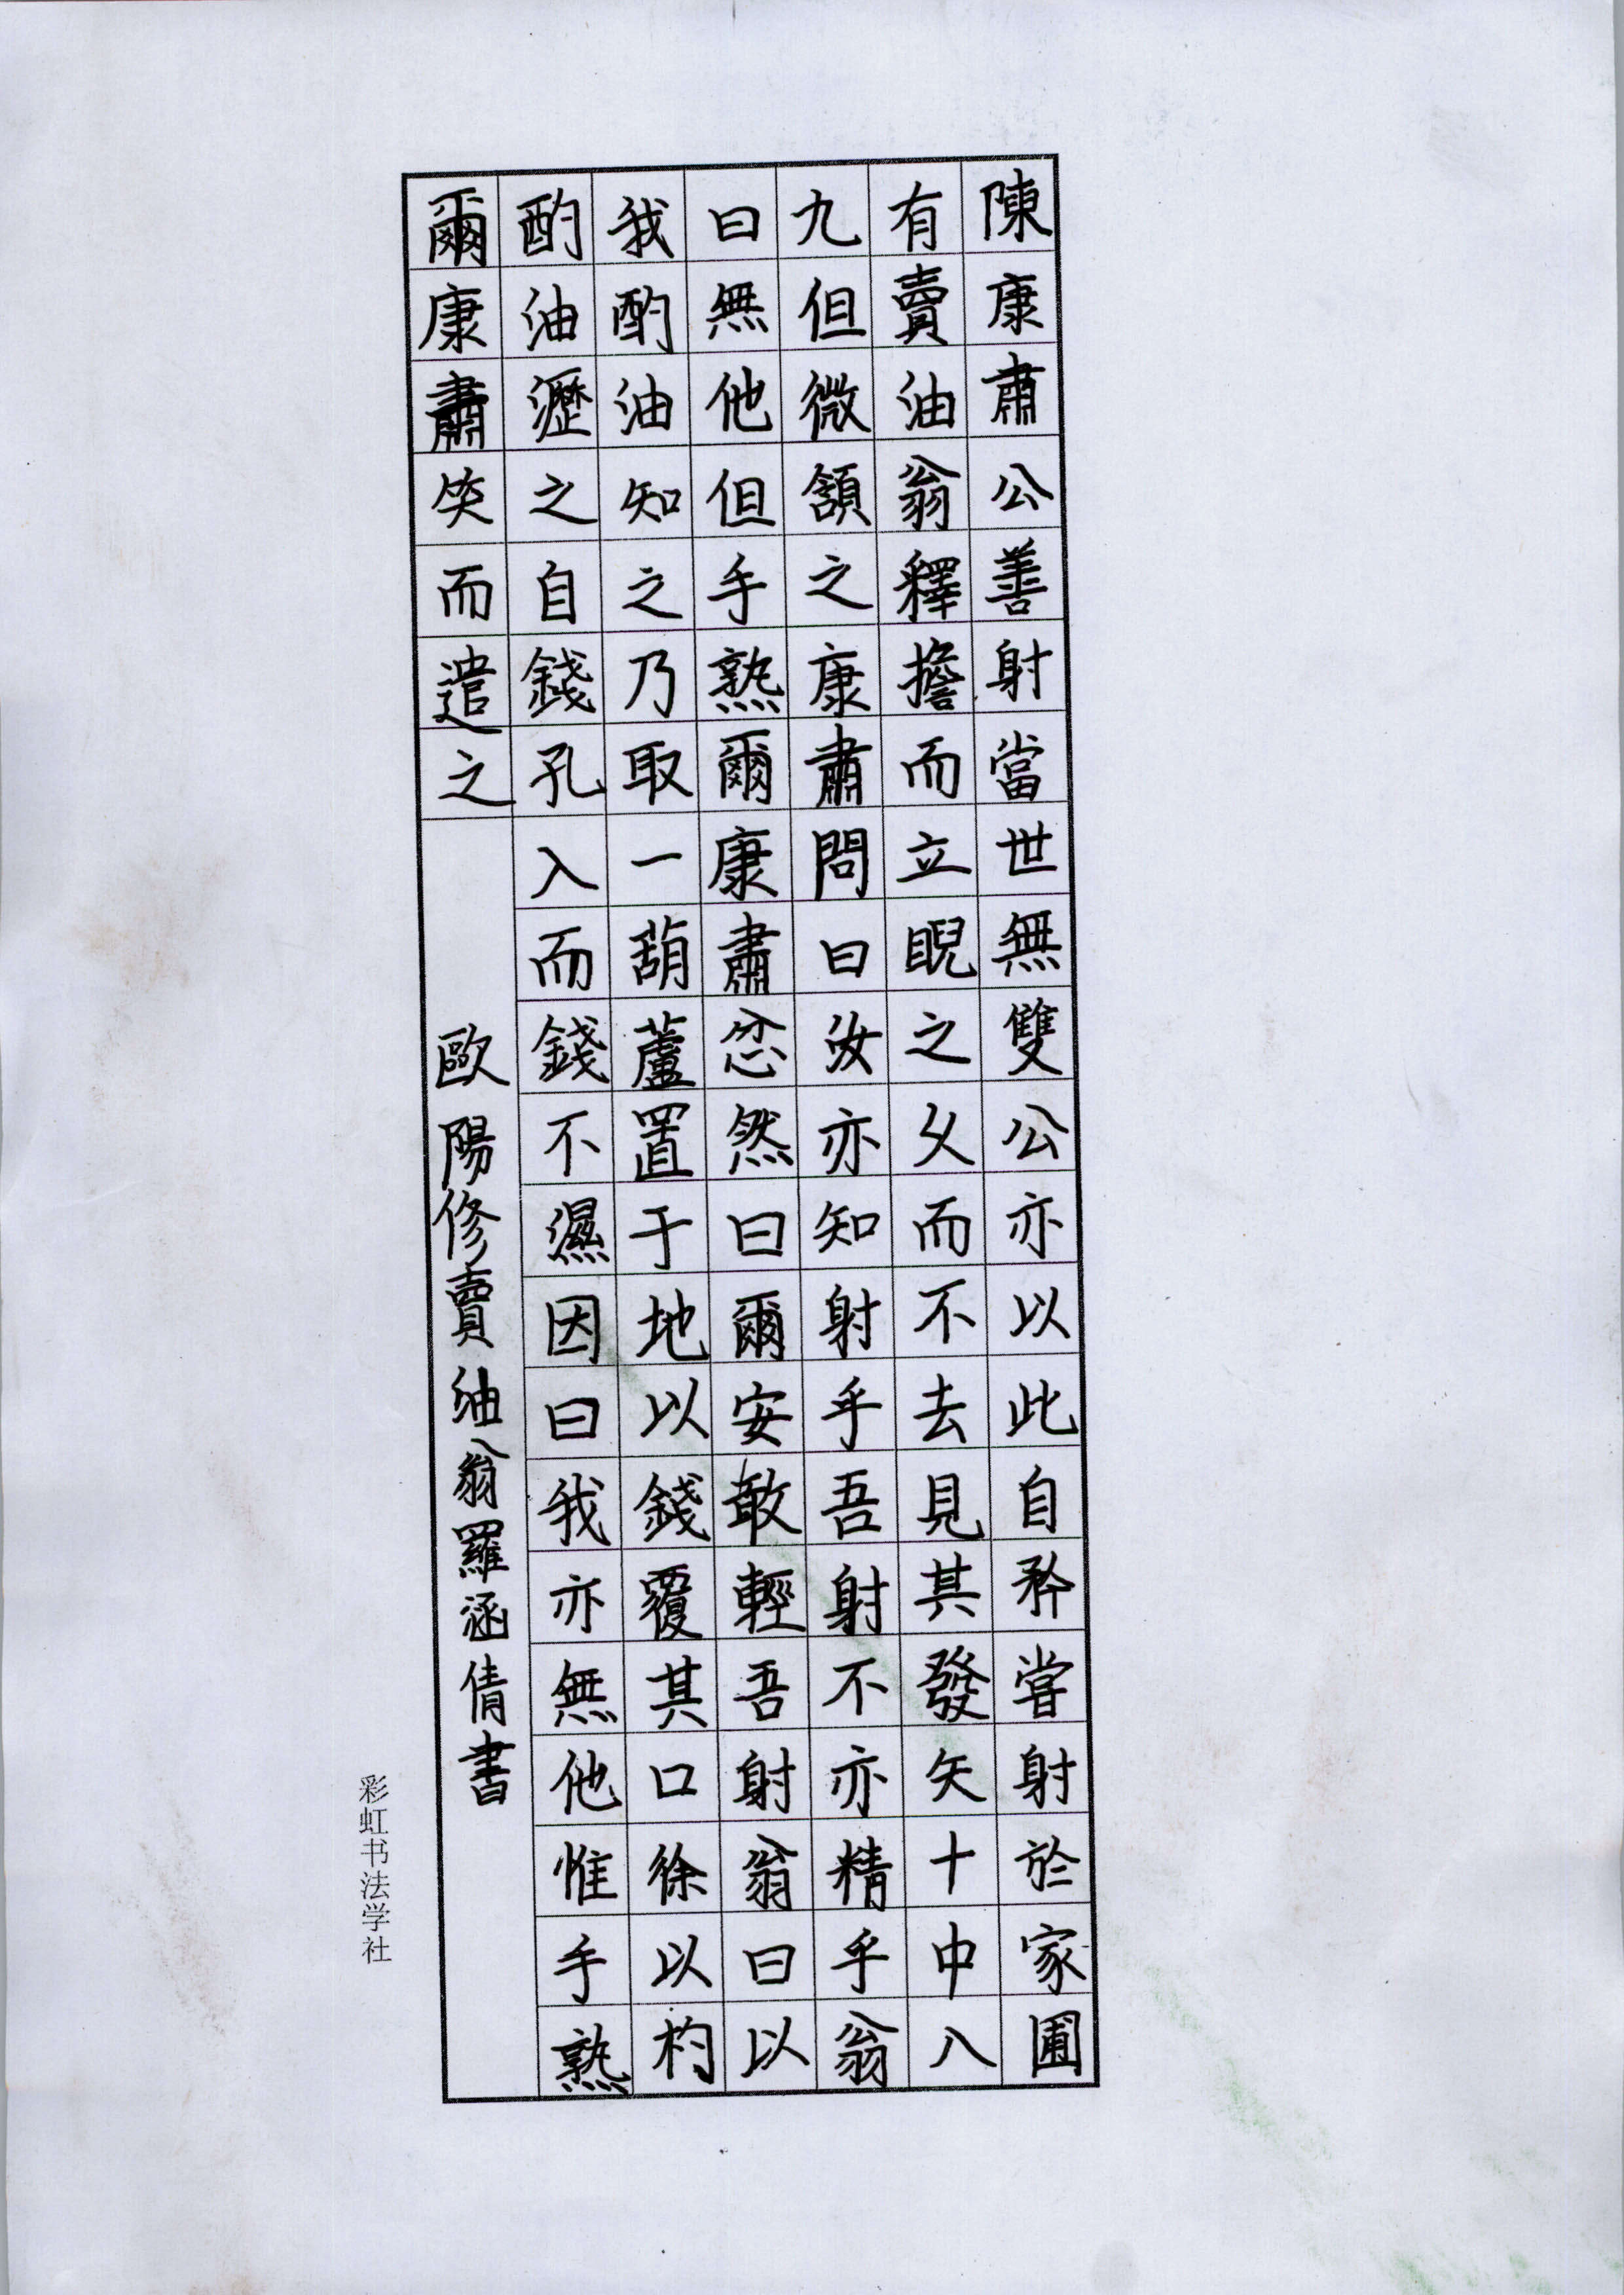 陳康肅公善射當世無雙公亦以此自矜嘗射於家圃
有賣油翁釋擔而立睨之乆而不去見其發矢十中八
九但微頷之康肅問曰汝亦知射乎吾射不亦精乎翁
曰無他但手熟爾康肅忿然曰爾安敢輕吾射翁曰以
我酌油知之乃取一葫蘆置于地以錢覆其口徐以杓
酌油瀝之自錢孔入而錢不濕因曰我亦無他惟手熟
爾康肅笑而遣之
歐陽修賣油翁羅涵倩書
彩虹书法学社